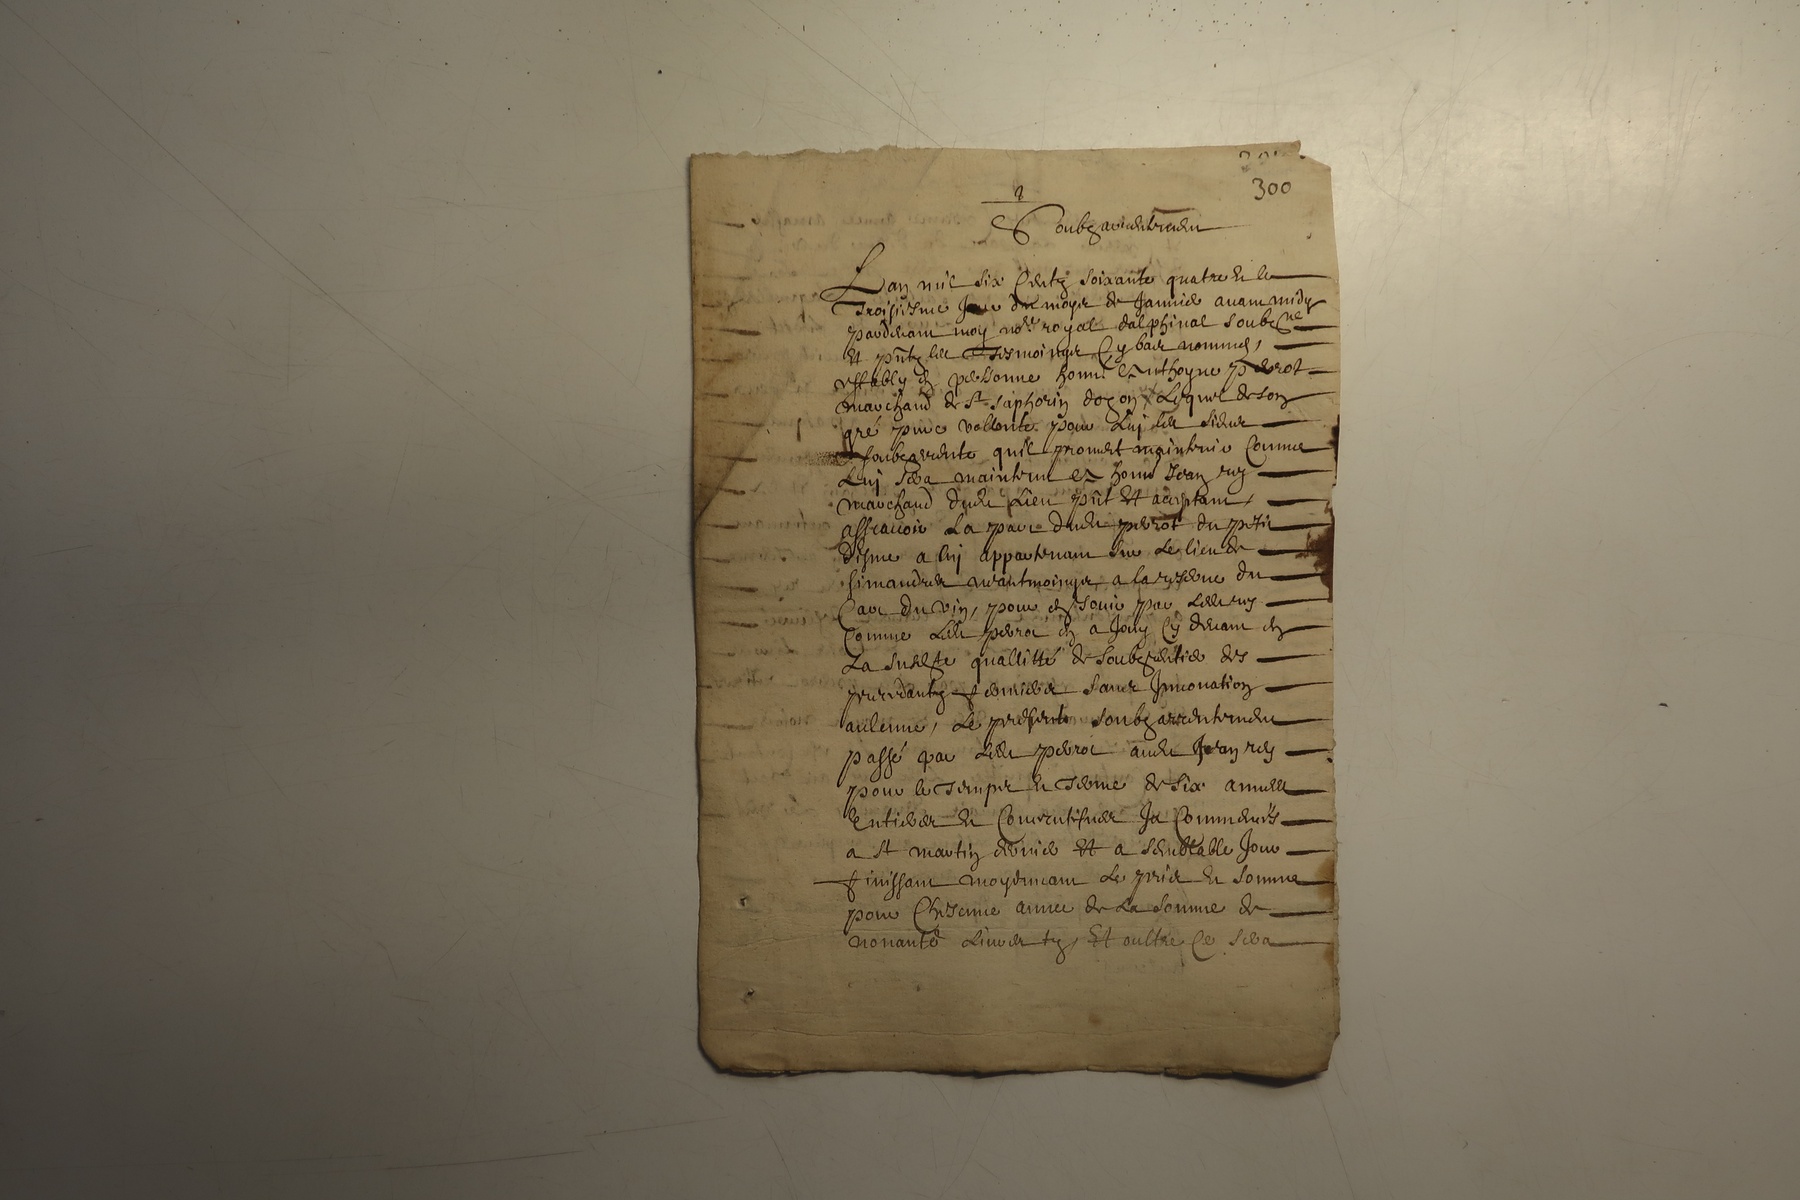 300
Soubzarrentement
Lan mil six Centz soixante quatre et le
Troisiesme Jour du moys de Janvier avant midy
pardevant moy no.re royal dalphinal soubz.né
Et p̄ntz les Tesmoings Cy bas nommés,
estably en personne hon.e Anthoyne perrot
marchand de S.t saphorin dozon, Lequel de son
gré pure vollonté pour Luy les siens
soubzarrente quil promet maintenir Comme
Luy sera maintenu a hon.e Jean rey
marchand dudit Lieu p̄nt Et aceptant,
asscavoir La part dudit perrot du petit
disme a luy appartenant sur Le lieu de
simandres neantmoings a la reserve du
du vin, pour en Jouir par Ledit rey
Comme Ledit perrot en a Jouy Cy devant en
La quallitté de soubzrentier des
precedantz fermiers sans Innovation
aulcune, Le present soubzarrentement
passé par Ledit perrot audit Jean rey
pour le Temps et Terme de six années
Entieres et Consecutifves Ja Commencés
a S.t martin dernier Et a semblable Jour
finissant moyennant Le prix et somme
pour Chescune année de La somme de
nonante Livres tz, Et oultre Ce sera